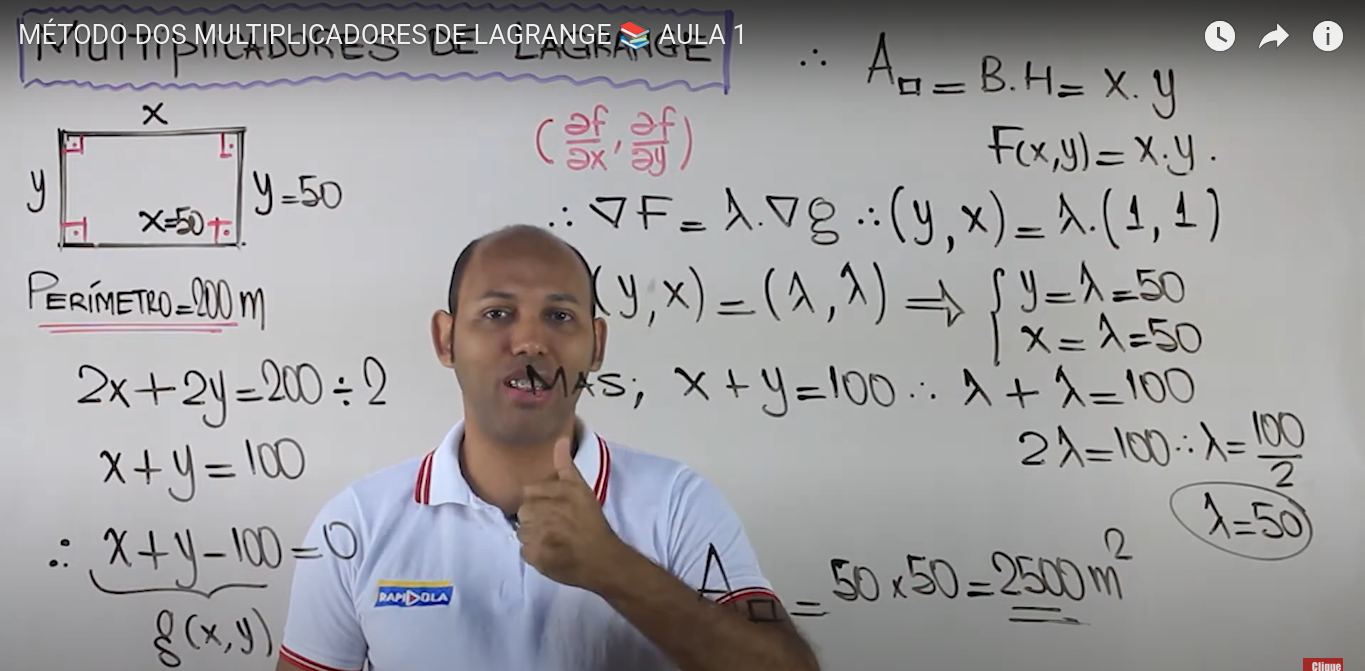 MÉTODO DOS MULTIPLICADORES DE LAGRANGE 📚 AULA 1
MULTIPLICADORES DE LAGRANGE
x
y
y=50
x=50
PERÍMETRO=200m
2x+2y=200÷2
x+y=100
∴ x+y-100=0
g(x,y)
(∂f/∂x, ∂f/∂y)
∴ A□ = B.H = x.y
F(x,y) = x.y.
∴ ∇F = λ.∇g ∴ (y,x) = λ.(1,1)
(y,x) = (λ,λ) ⇒ { y=λ=50
x=λ=50
MAS; x+y=100 ∴ λ+λ=100
2λ=100 ∴ λ=100/2
λ=50
A□ = 50x50=2500m²
RAPIDOLA
Clique